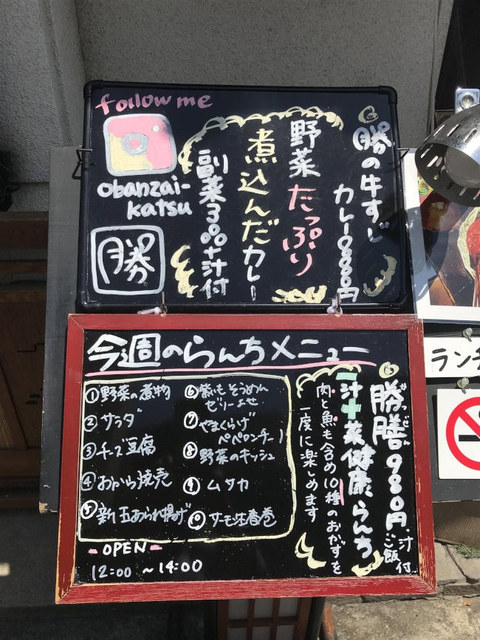 follow me
obanzai-
katsu
勝
勝の牛すじ
カレー980円
野菜たっぷり
煮込んだカレー
副菜3品+汁付
今週のらんちメニュー
①野菜の煮物
②サラダ
③チーズ豆腐
④おから焼売
⑤新玉あられ揚げ
⑥紫いもそうめん
ゼリーよせ
⑦やまくらげ
ペペロンチーノ
⑧野菜のキッシュ
⑨ムタカ
⑩サーモン生春巻
OPEN
12:00 ～14:00
勝膳980円
汁付
ご飯
一汁十菜健康らんち
肉も魚も含め10種のおかずを
一度に楽しめます
ランチ